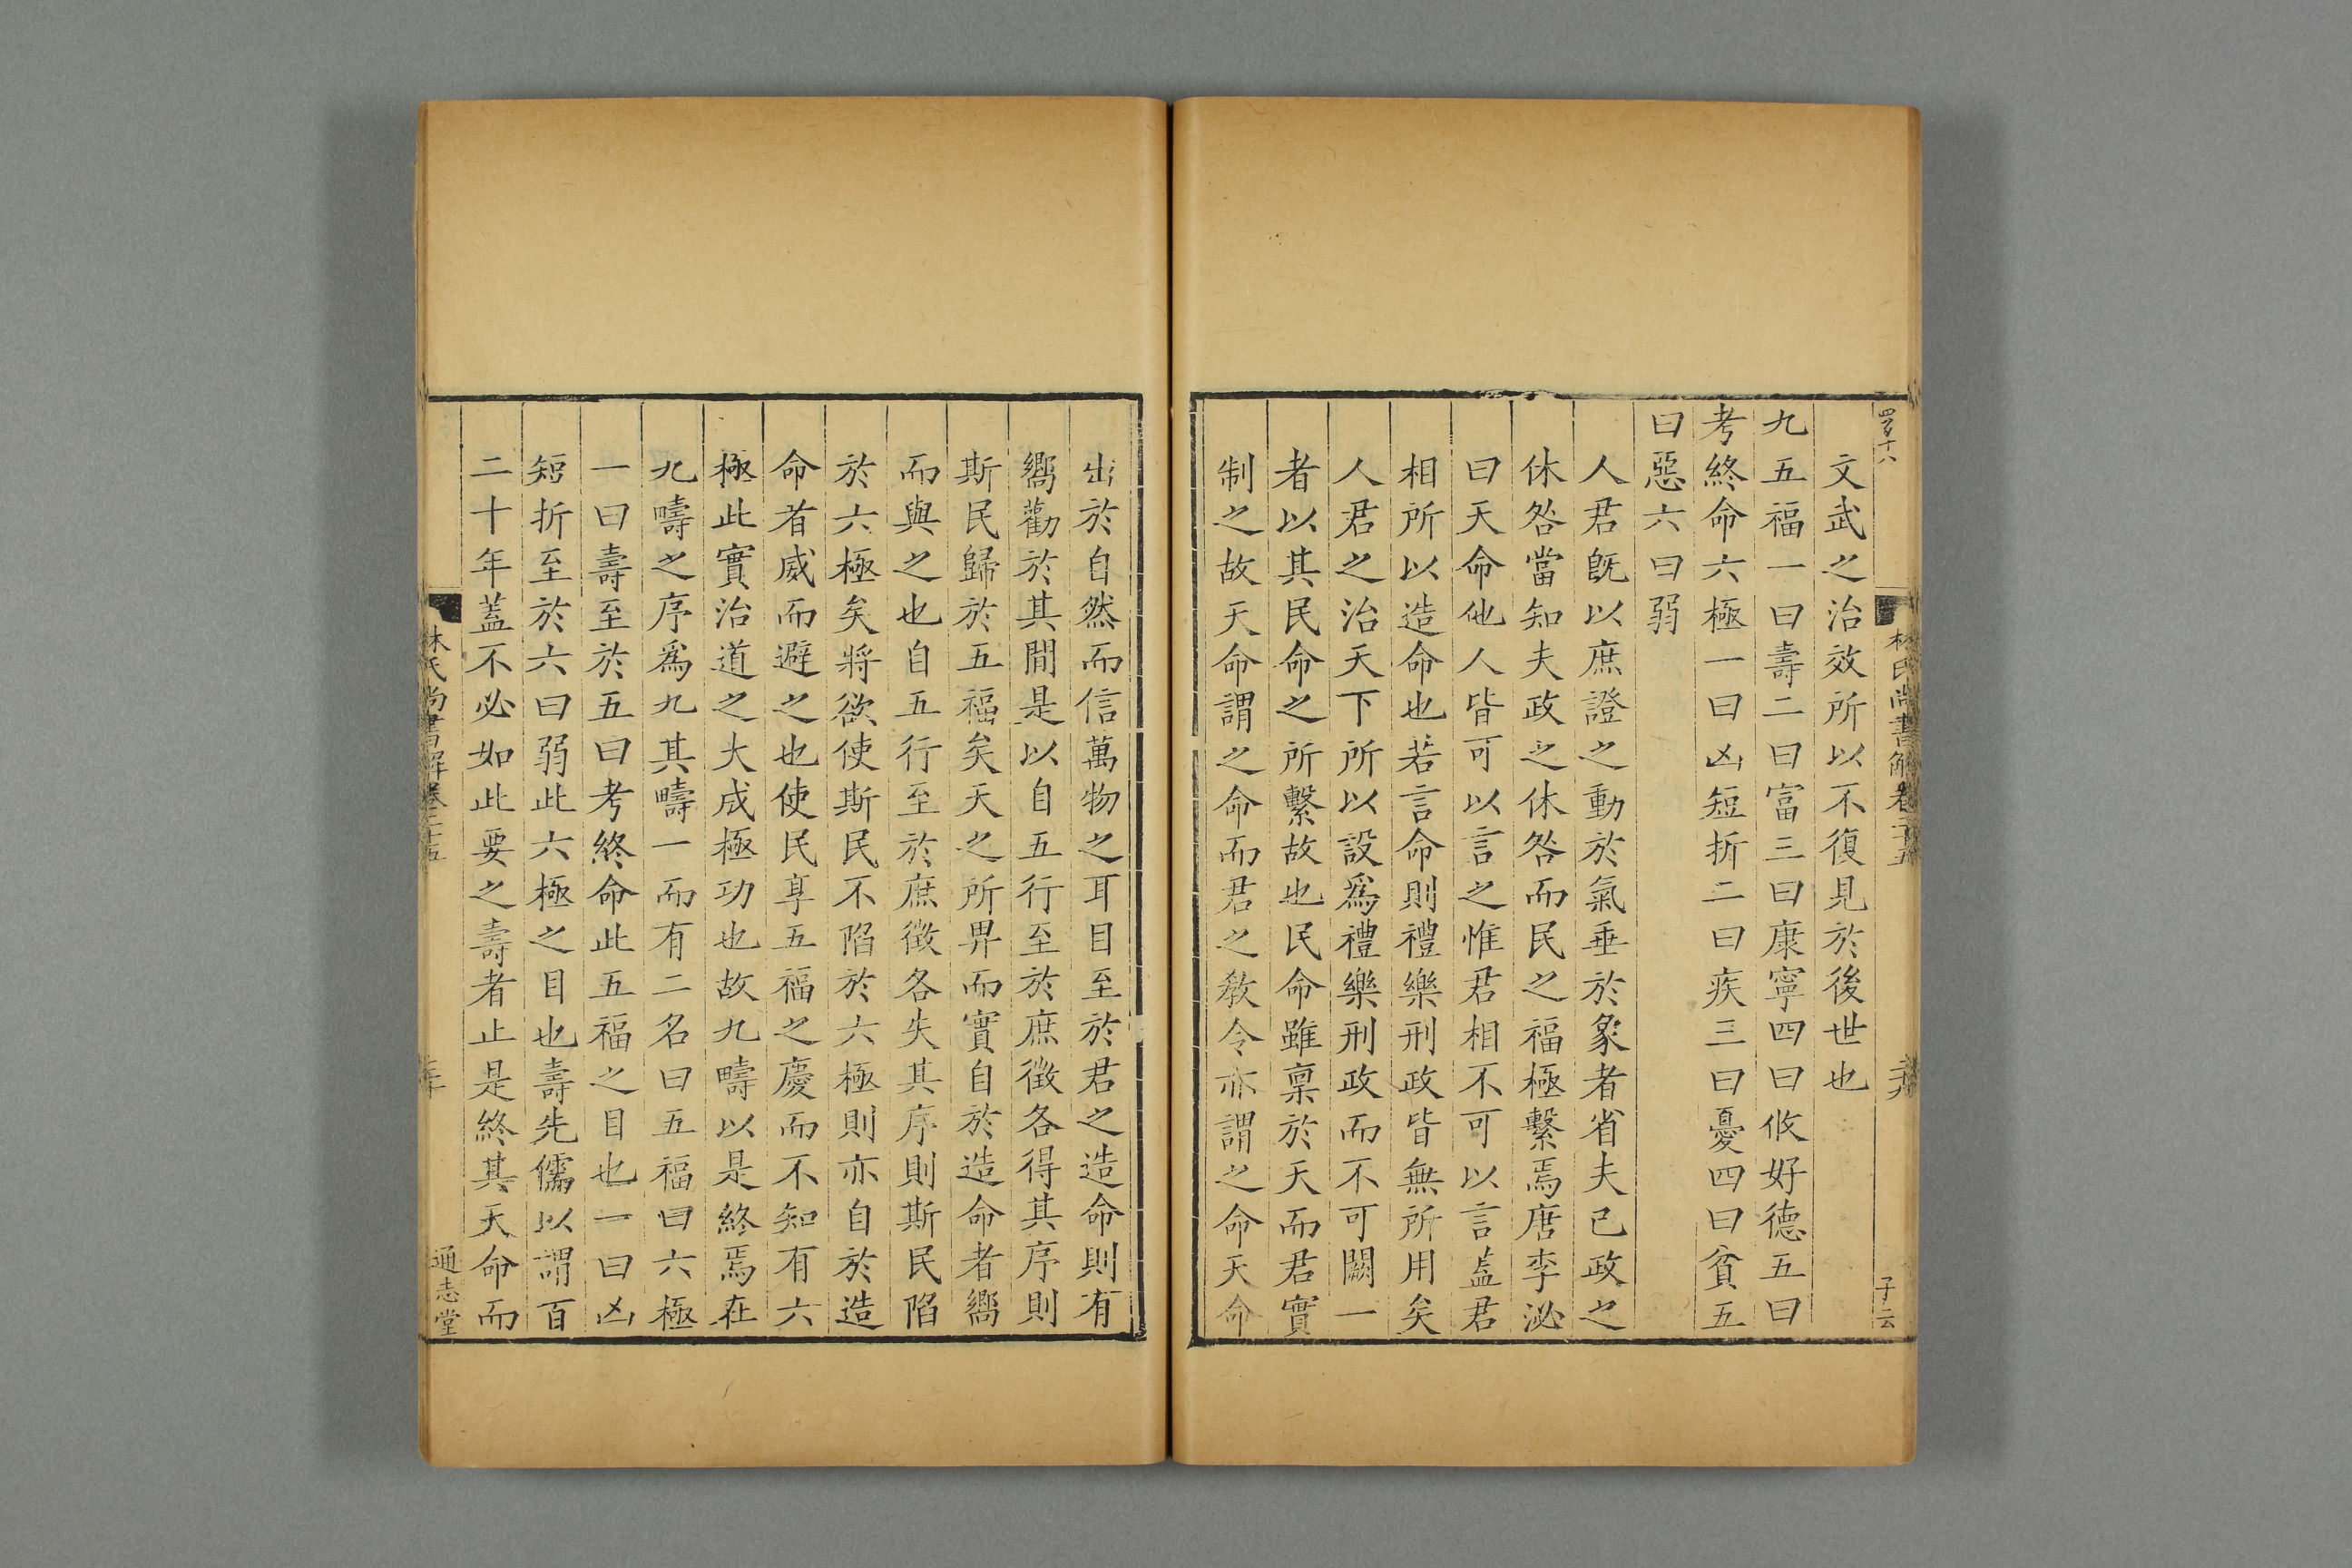 四百十八
林氏尚書解卷二十五
子云
文武之治效所以不復見於後世也
九五福一曰壽二曰富三曰康寧四曰攸好德五曰
考終命六極一曰凶短折二曰疾三曰憂四曰貧五
曰惡六曰弱
人君旣以庶證之動於氣垂於象者省夫己政之
休咎當知夫政之休咎而民之福極繫焉唐李泌
曰天命他人皆可以言之惟君相不可以言葢君
相所以造命也若言命則禮樂刑政皆無所用矣
人君之治天下所以設爲禮樂刑政而不可闕一
者以其民命之所繫故也民命雖稟於天而君實
制之故天命謂之命而君之敎令亦謂之命天命
出於自然而信萬物之耳目至於君之造命則有
嚮勸於其間是以自五行至於庶徵各得其序則
斯民歸於五福矣天之所畀而實自於造命者嚮
而與之也自五行至於庶徵各失其序則斯民陷
於六極矣將欲使斯民不陷於六極則亦自於造
命者威而避之也使民享五福之慶而不知有六
極此實治道之大成極功也故九疇以是終焉在
九疇之序爲九其疇一而有二名曰五福曰六極
一曰壽至於五曰考終命此五福之目也一曰凶
短折至於六曰弱此六極之目也壽先儒以謂百
二十年蓋不必如此要之壽者止是終其天命而
林氏尚書解卷二十五
通志堂